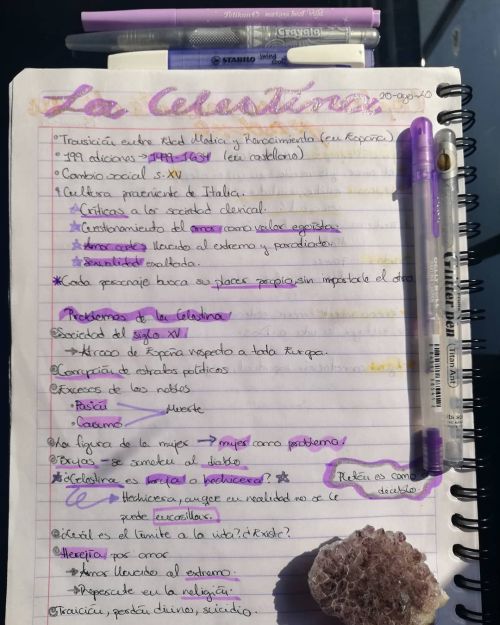 STABILO swing cool
La Celestina.
20-ago-20
°Transición entre Edad Media y Renacimiento (en España)
°199 ediciones → 1499-1634 (en castellano)
°Cambio social s.XV
°Cultura proveniente de Italia.
☆Críticas a la sociedad clerical.
☆Cuestionamiento del amor como valor egoísta.
☆Amor cortés llevado al extremo y parodiado.
☆Sexualidad exaltada.
*Cada personaje busca su placer propio, sin importarle el otro
Problemas de la Celestina
Sociedad del siglo XV
→Atraso de España respecto a toda Europa.
Corrupción de estratos políticos
Excesos de los nobles
•Pasión
•Consumo
Muerte
La figura de la mujer → mujer como problema!
Brujas - se someten al diablo
☆¿Celestina es bruja o hechicera? ☆
→Hechicera, aunque en realidad no se le
puede encasillar.
Plebérico
¿Cuál es el límite a la vida? ¿Existe?
Herejía por amor
→Amor llevado al extremo.
→Repercute en la religión.
Traición, perdón divino, suicidio.
Glitter Pen